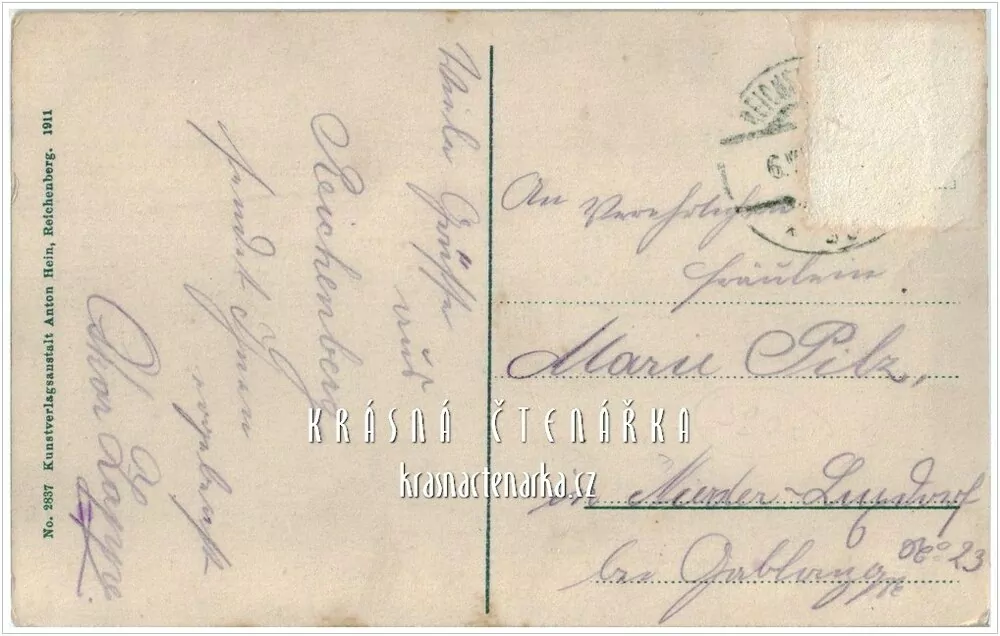 No. 2837 Kunstverlagsanstalt Anton Hein, Reichenberg. 1911
Viele Grüsse
aus
Reichenberg
sendet Ihnen
REICHE
6.VI
An Verehrliches
Fräulein
Marie Pilz,
in Nieder-
bei Gablonz
No 23
KRÁSNÁ ČTENÁŘKA
krasnactenarka.cz